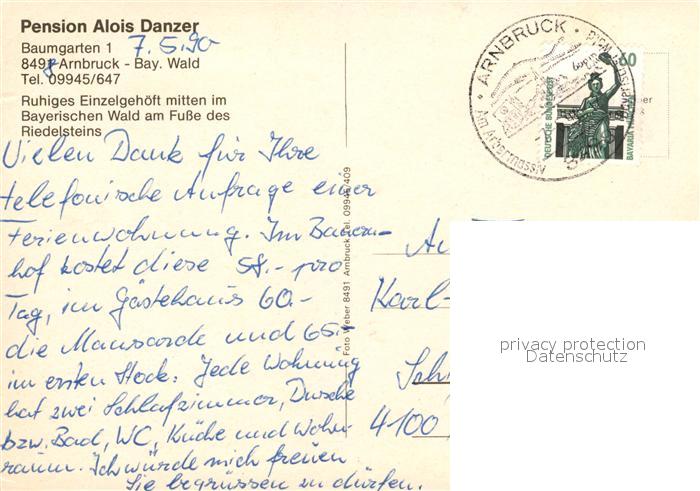 Pension Alois Danzer
Baumgarten 1 7.5.90
8498 Arnbruck - Bay. Wald
Tel. 09945/647
Ruhiges Einzelgehöft mitten im
Bayerischen Wald am Fuße des
Riedelsteins
Vielen Dank für Ihre
telefonische Anfrage einer
Ferienwohnung. Im Bauern-
hof kostet diese 58.- pro
Tag, im Gästehaus 60.-
die Mansarde und 65.-
im ersten Stock. Jede Wohnung
hat zwei Schlafzimmer, Dusche
bzw. Bad, WC, Küche und Wohn-
raum. Ich würde mich freuen
Sie begrüssen zu dürfen.
Foto Weber 8491 Arnbruck Tel. 09945/409
ARNBRUCK
Am Arbermassiv
60
DEUTSCHE BUNDESPOST
BAVARIA MÜNCHEN
Karl-
4100
privacy protection
Datenschutz